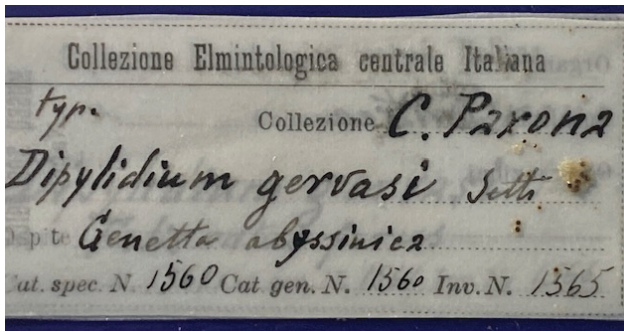 Collezione Elmintologica centrale Italiana
typ.
Collezione C. Parona
Dipylidium gervasi Setti
Ospite Genetta abyssinica
Cat. spec. N. 1560 Cat gen. N. 1560 Inv. N. 1565